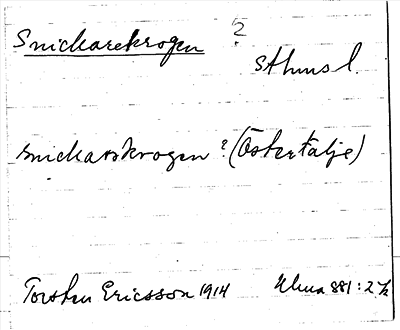 Snickarekrogen ?
Sthms l.
snickarskrogen ? (Östertälje)
Torsten Ericsson 1914 Uluna 881 : 2 ½